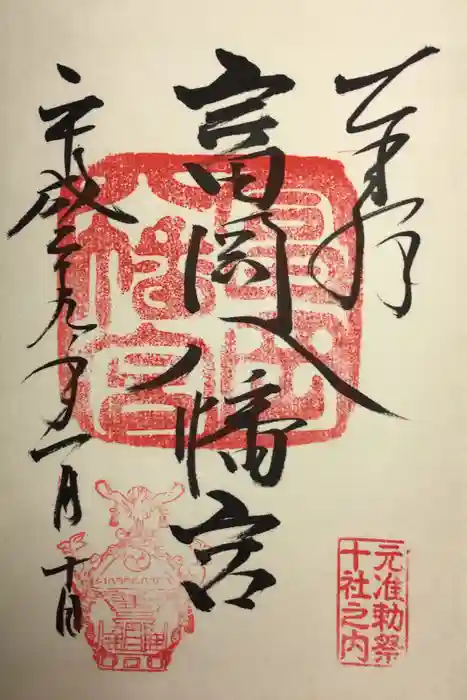 奉拝
富岡八幡宮
平成二十九年一月十日
元准勅祭
十社之内